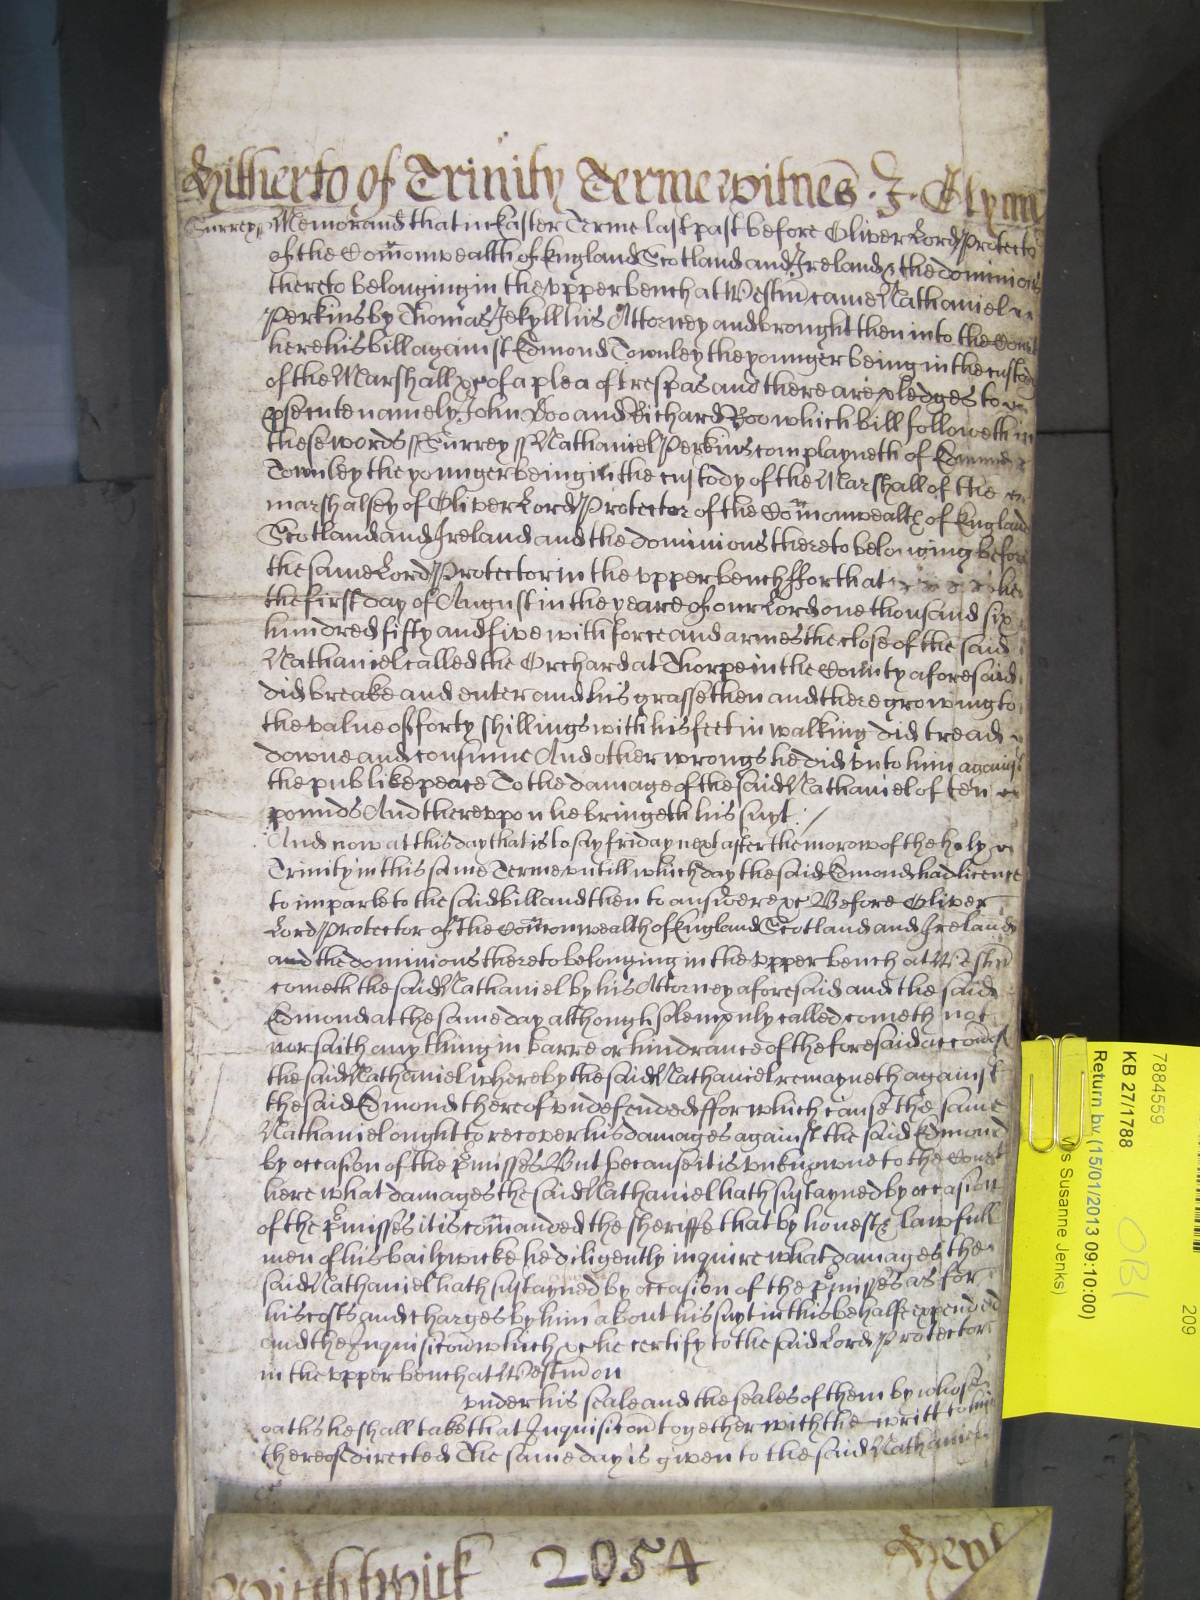 Hitherto of Trinity Terme witnes J. Glynne
Surrey // Memorand that in Easter Terme last past before Oliver Lord Protector
of the Com̄onwealth of England Scotland and Ireland & the dominions
thereto belonging in the vpper bench at Westm̄ came Nathaniel
Perkins by Thomas Jekyll his Attorney and brought then into the Court
here his bill against Edmond Townley the younger being in the custody
of the Marshall &c of a plea of trespas and there are pledges to
psente namely John Doo and Richard Roo which bill followeth in
these words // Surrey // Nathaniel Perkins complayneth of Edmond
Townley the younger being in the custody of the Marshall of the
marshalsey of Oliver Lord Protector of the Com̄onwealth of England
Scotland and Ireland and the dominions thereto belonging before
the same Lord Protector in the vpper bench ffor that he
the first day of August in the yeare of our Lord one thousand six
hundred fifty and five with force and armes the close of the said
Nathaniel called the Orchard at Thorpe in the County aforesaid
did breake and enter and his grasse then and there growing to
the value of forty shillings with his feet in walking did tread
downe and consume And other wrongs he did vnto him against
the publike peace To the damage of the said Nathaniel of ten
pounds And therevpon he bringeth his suyt /
And now at this day that is to say friday next after the morow of the holy
Trinity in this same Terme vntill which day the said Edmond had licence
to imparle to the said bill and then to answere &c Before Oliver
Lord Protector of the Com̄onwealth of England Scotland and Ireland
and the dominions thereto belonging in the vpper bench at Westm̄
cometh the said Nathaniel by his Attorney aforesaid and the said
Edmond at the same day although solempnly called cometh not
nor saith any thing in barre or hindrance of the foresaid accōn of
the said Nathaniel whereby the said Nathaniel remayneth against
the said Edmond thereof vndefended ffor which cause the same
Nathaniel ought to recover his damages against the said Edmond
by occasion of the p̄misses But because it is vnknowne to the Court
here what damages the said Nathaniel hath sustayned by occasion
of the p̄misses it is com̄anded the sheriffe that by honest & lawfull
men of his bailywicke he diligently inquire what damages the
said Nathaniel hath sustayned by occasion of the p̄misses as for
his costs and charges by him about his suyt in this behalfe expended
and the Inquisicōn which &c he certify to the said Lord Protector
in the vpper bench at Westm̄ on
vnder his seale and the seales of them by whose
oaths he shall take that Inquisicōn together with the writt to him
thereof directed The same day is given to the said Nathaniel
2054
Kent
7884559
KB 27/1788
Return by (15/01/2013 09:10:00)
s Susanne Jenks)
209